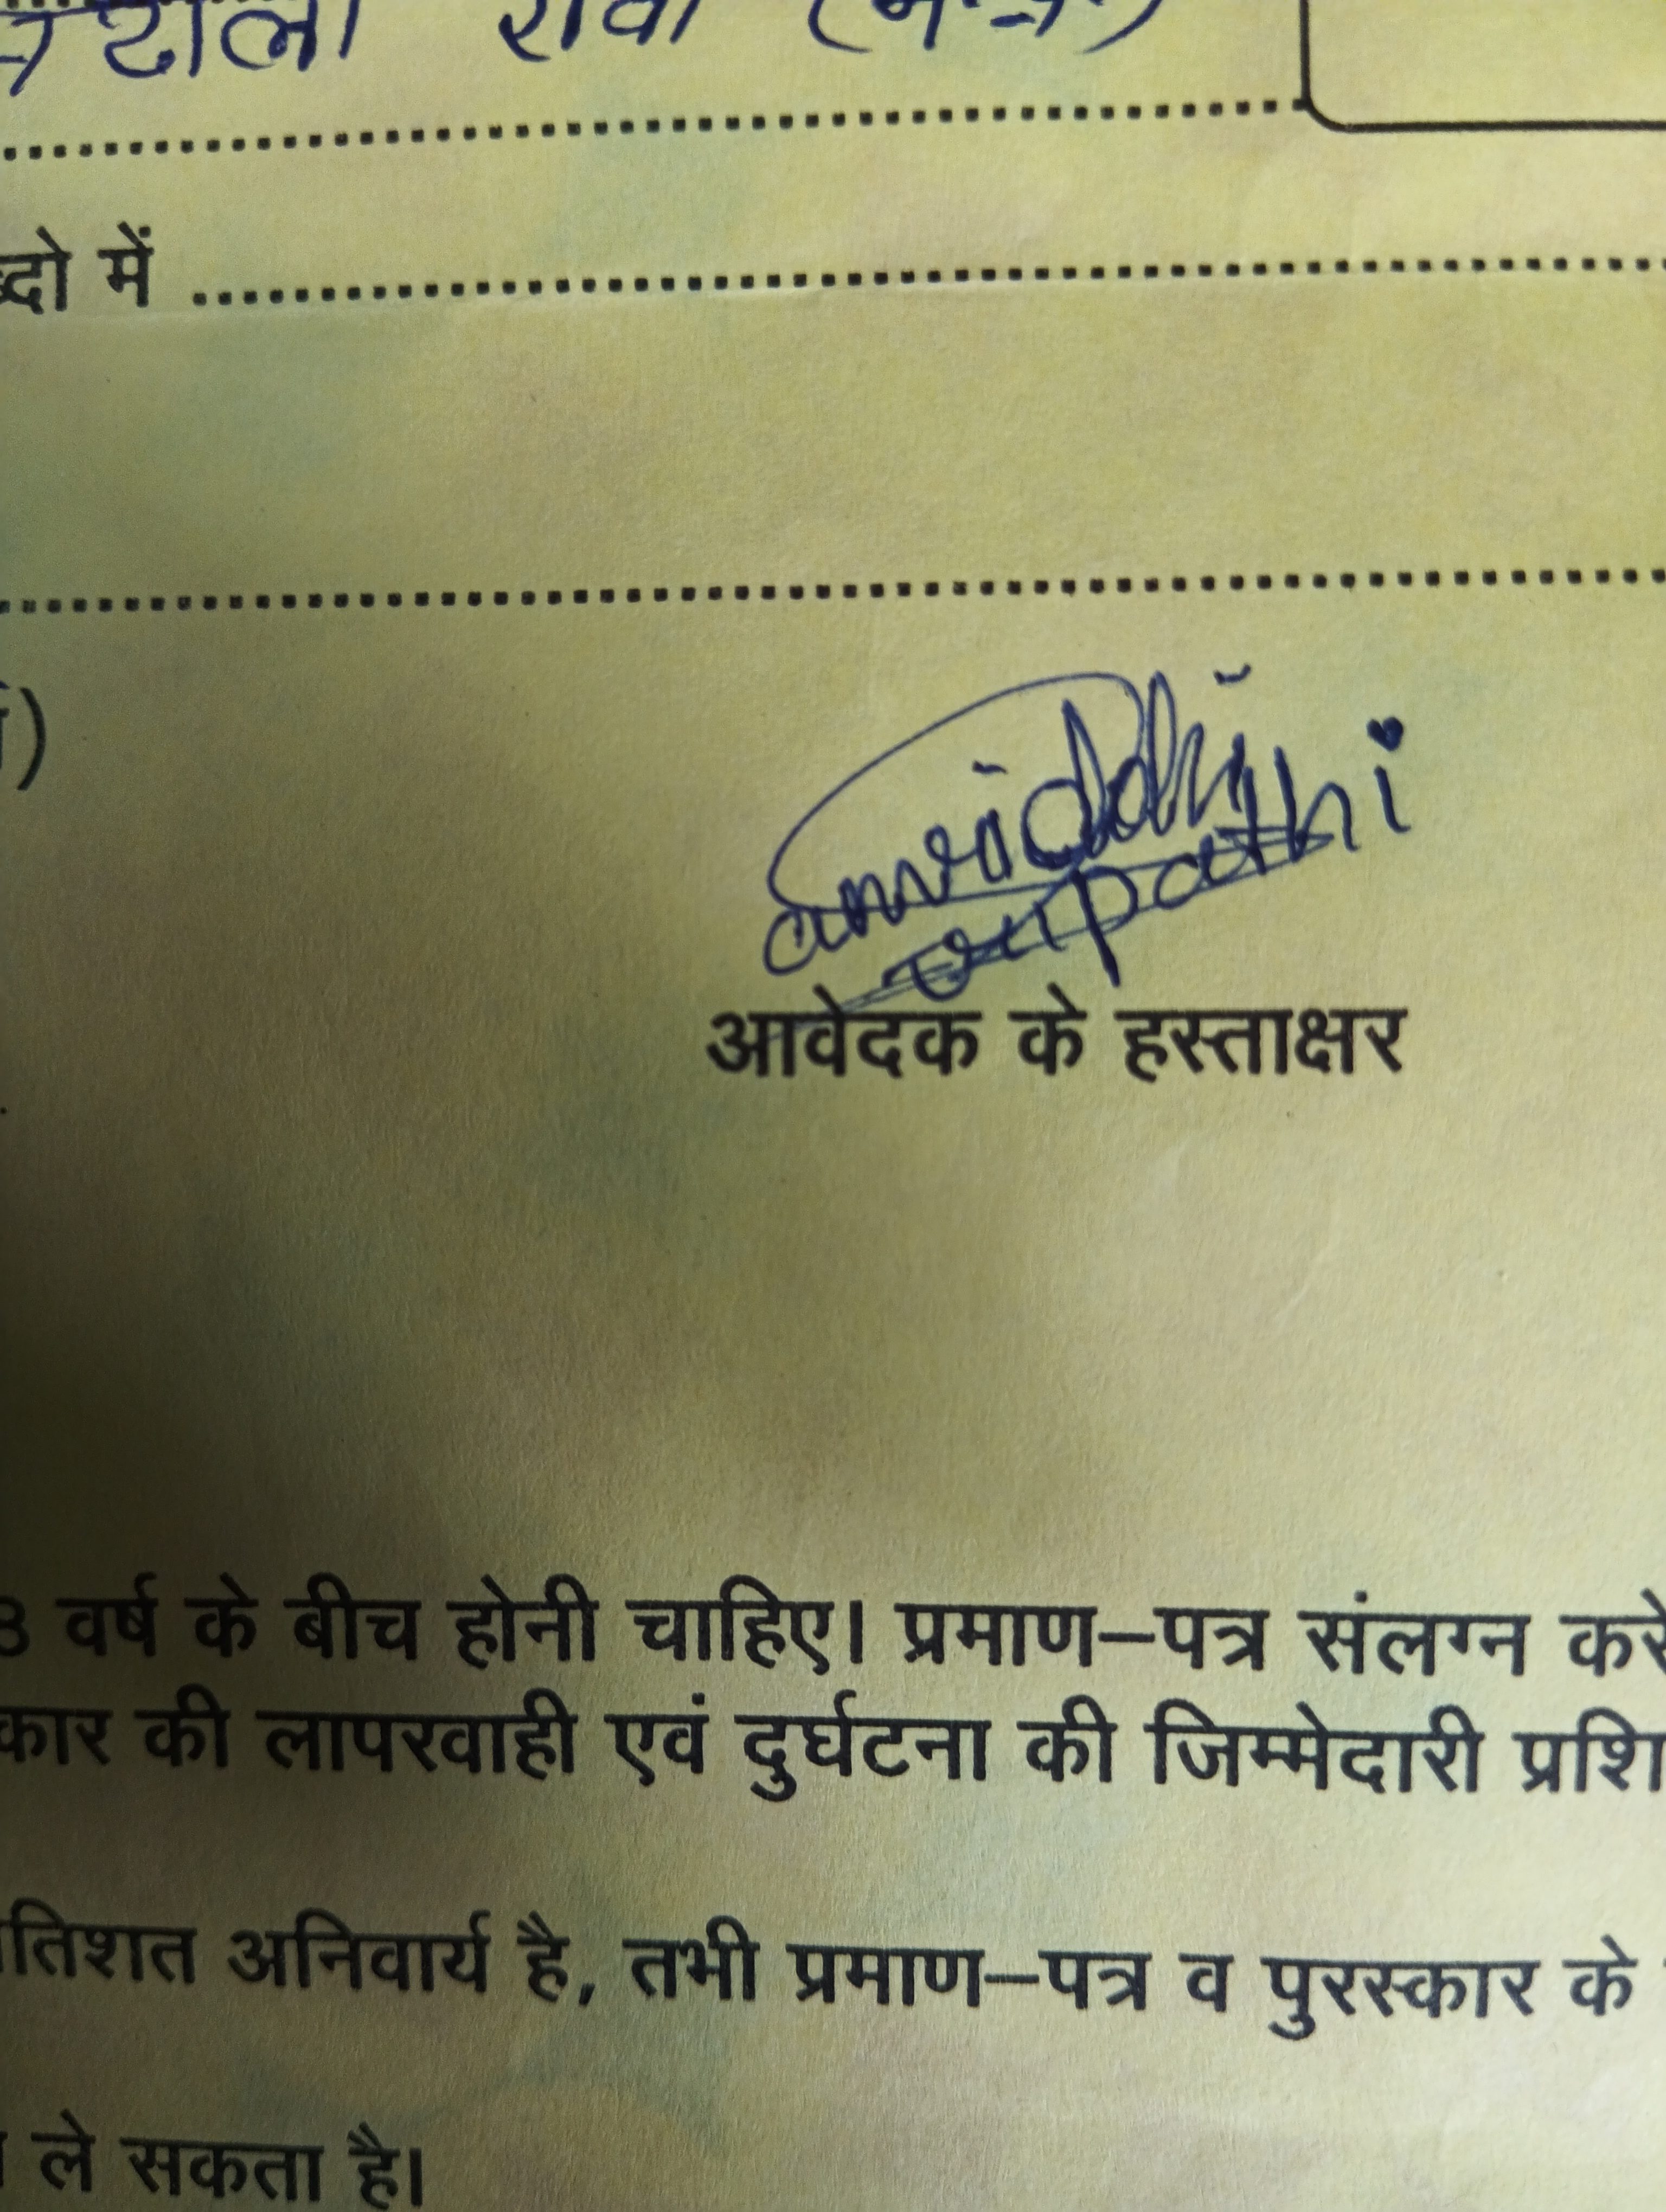 रीवा (म.प्र.)
ब्दो में ................................................
आवेदक के हस्ताक्षर
8 वर्ष के बीच होनी चाहिए। प्रमाण–पत्र संलग्न करे
कार की लापरवाही एवं दुर्घटना की जिम्मेदारी प्रशि
तिशत अनिवार्य है, तभी प्रमाण–पत्र व पुरस्कार के
ले सकता है।